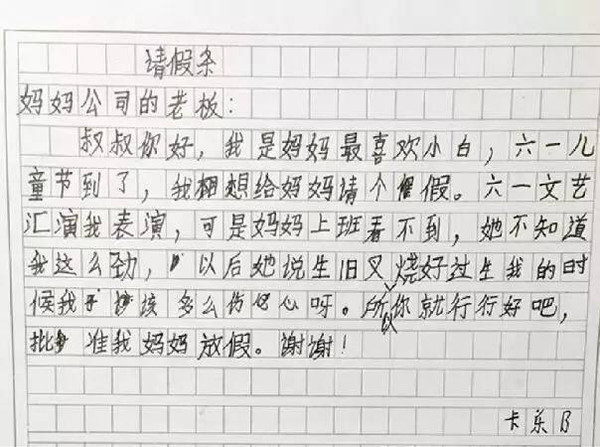 请假条
妈妈公司的老板：
叔叔你好，我是妈妈最喜欢小白，六一儿
童节到了，我想给妈妈请个假。六一文艺
汇演我表演，可是妈妈上班看不到，她不知道
我这么劲，以后她说生旧又烧好过生我的时
候我该多么伤心呀。所以你就行行好吧，
批准我妈妈放假。谢谢！
卡乐B